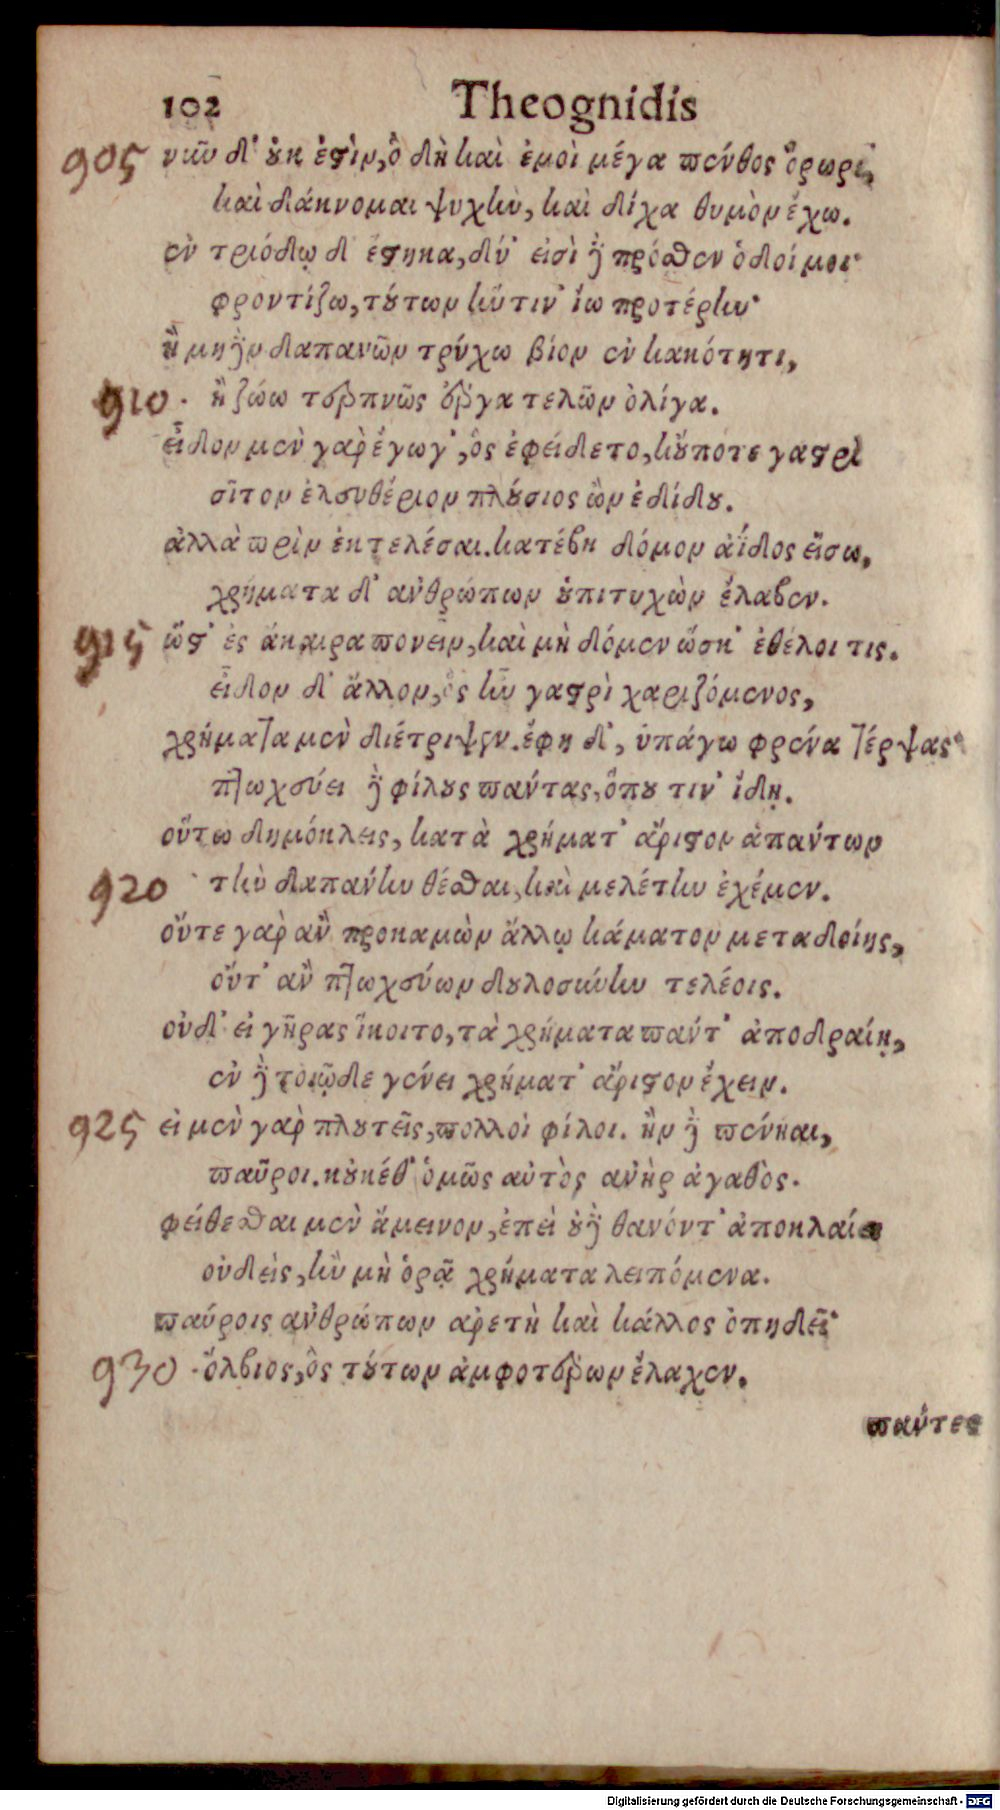 102 Theognidis
905 νῦν δ' οὐκ ἐστὶν, ὃ δὴ καὶ ἐμοὶ μέγα πένθος ὄρωρε,
καὶ δάκνομαι ψυχὴν, καὶ δίχα θυμὸν ἔχω.
ἐν τριόδῳ δ' ἕστηκα, δύ' εἰσὶ δὲ πρόσθεν ὁδοί μοι·
φροντίζω, τούτων ἥντιν' ἴω προτέρην·
ἢ μηδὲν δαπανῶν τρύχω βίον ἐν κακότητι,
910 ἢ ζώω τερπνῶς ἔργα τελῶν ὀλίγα.
εἶδον μὲν γὰρ ἔγωγ', ὃς ἐφείδετο, κοὔποτε γαστρὶ
σῖτον ἐλευθέριον πλούσιος ὢν ἐδίδου.
ἀλλὰ πρὶν ἐκτελέσαι. κατέβη δόμον ἄϊδος εἴσω,
χρήματα δ' ἀνθρώπων οὑπιτυχὼν ἔλαβεν.
915 ὥστ' ἐς ἄκαιρα πονεῖν, καὶ μὴ δόμεν ὥσκ' ἐθέλοι τις.
εἶδον δ' ἄλλον, ὃς ἣν γαστρὶ χαριζόμενος,
χρήματα μὲν διέτριψεν. ἔφη δ', ὑπάγω φρένα τέρψας·
πτωχεύει δὲ φίλους πάντας, ὅπου τιν' ἴδῃ.
οὕτω δημόκλεις, κατὰ χρήματ' ἄριστον ἁπάντων
920 τὴν δαπάνην θέσθαι, καὶ μελέτην ἐχέμεν.
οὔτε γὰρ ἂν προκαμὼν ἄλλῳ κάματον μεταδοίης,
οὔτ' ἂν πτωχεύων δουλοσύνην τελέοις.
οὐδ' εἰ γῆρας ἵκοιτο, τὰ χρήματα πάντ' ἀποδραίη,
ἐν δὲ τοιῷδε γένει χρήματ' ἄριστον ἔχειν.
925 εἰ μὲν γὰρ πλουτεῖς, πολλοὶ φίλοι. ἢν δὲ πένηαι,
παῦροι. κοὐκέθ' ὁμῶς αὐτὸς ἀνὴρ ἀγαθὸς.
φείδεσθαι μὲν ἄμεινον, ἐπεὶ οὐδὲ θανόντ' ἀποκλαίει
οὐδεὶς, ἢν μὴ ὁρᾷ χρήματα λειπόμενα.
παύροις ἀνθρώπων ἀρετὴ καὶ κάλλος ὀπηδεῖ·
930 ὄλβιος, ὃς τούτων ἀμφοτέρων ἔλαχεν.
πάντες
Digitalisierung gefördert durch die Deutsche Forschungsgemeinschaft - DFG